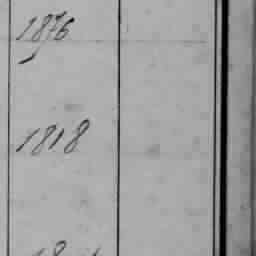 1876
1818